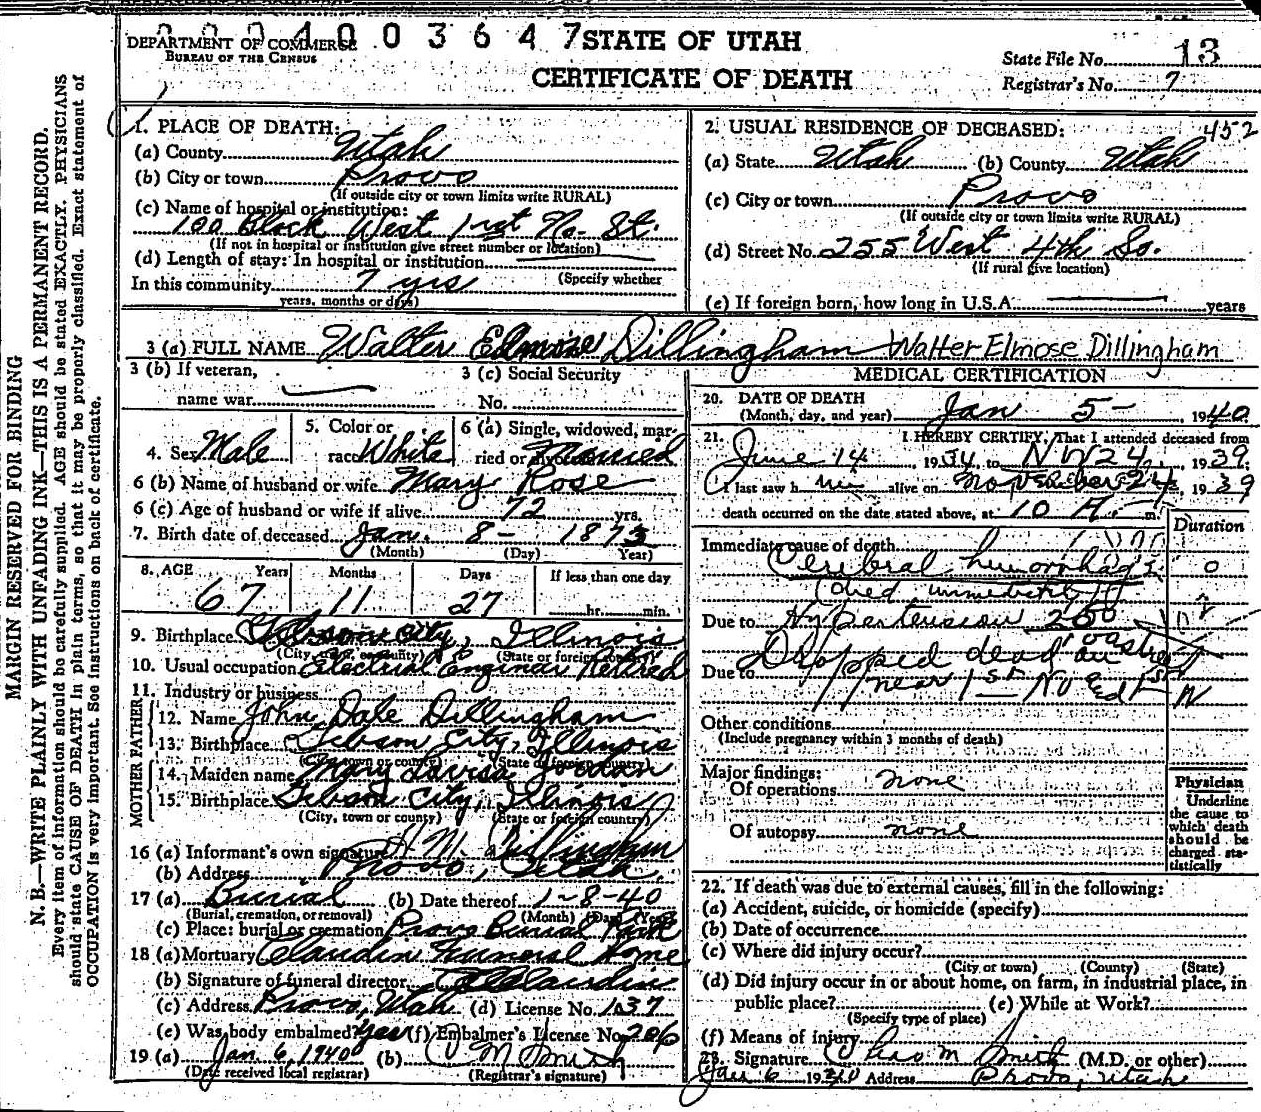 0 0 0 4 0 0 3 6 4 7 STATE OF UTAH
DEPARTMENT OF COMMERCE
BUREAU OF THE CENSUS
CERTIFICATE OF DEATH
State File No. 13
Registrar's No. 7
MARGIN RESERVED FOR BINDING
N. B.—WRITE PLAINLY WITH UNFADING INK—THIS IS A PERMANENT RECORD.
Every item of information should be carefully supplied. AGE should be stated EXACTLY. PHYSICIANS
should state CAUSE OF DEATH in plain terms, so that it may be properly classified. Exact statement of
OCCUPATION is very important. See instructions on back of certificate.
1. PLACE OF DEATH:
(a) County Utah
(b) City or town Provo
(If outside city or town limits write RURAL)
(c) Name of hospital or institution:
100 Block West 1st No. St.
(If not in hospital or institution give street number or location)
(d) Length of stay: In hospital or institution
(Specify whether
In this community 7 yrs
years, months or days)
2. USUAL RESIDENCE OF DECEASED: 452
(a) State Utah (b) County Utah
(c) City or town Provo
(If outside city or town limits write RURAL)
(d) Street No. 255 West 4th So.
(If rural give location)
(e) If foreign born, how long in U.S.A. years
3 (a) FULL NAME Walter Elmose Dillingham Walter Elmose Dillingham
3 (b) If veteran,
name war
3 (c) Social Security
No.
4. Sex Male
5. Color or
race White
6 (a) Single, widowed, mar-
ried or divorced Married
6 (b) Name of husband or wife Mary Rose
6 (c) Age of husband or wife if alive 72 yrs.
7. Birth date of deceased Jan. 8- 1873
(Month) (Day) (Year)
8. AGE Years Months Days If less than one day
67 11 27 hr. min.
9. Birthplace Gibson City, Illinois
(City, town or county) (State or foreign country)
10. Usual occupation Electrial Enginar Retired
11. Industry or business
FATHER
12. Name John Dale Dillingham
13. Birthplace Gibson City, Illinois
(City, town or county) (State or foreign country)
MOTHER
14. Maiden name Mary Lavisa Jordan
15. Birthplace Gibson City, Illinois
(City, town or county) (State or foreign country)
16 (a) Informant's own signature M. Dillingham
(b) Address Provo, Utah.
17 (a) Burial (b) Date thereof 1-8-40
(Burial, cremation, or removal) (Month) (Day) (Year)
(c) Place: burial or cremation Provo Burial Park
18 (a) Mortuary Claudin Funeral Home
(b) Signature of funeral director Claudin
(c) Address Provo, Utah (d) License No. 137
(e) Was body embalmed? Yes (f) Embalmer's License No. 206
19 (a) Jan 6, 1940 (b) O M Smith
(Date received local registrar) (Registrar's signature)
MEDICAL CERTIFICATION
20. DATE OF DEATH
(Month, day, and year) Jan 5- 1940
21. I HEREBY CERTIFY, That I attended deceased from
June 14, 1934, to Nov 24, 1939.
I last saw him alive on November 24, 1939
death occurred on the date stated above, at 10 A. m.
Duration
Immediate cause of death
Cerebral humorrhage 0
(died immediately)
Due to Hypertension 260
Dropped dead on street
Due to near 1st No
Other conditions
(Include pregnancy within 3 months of death)
Major findings:
Of operations none
Of autopsy none
Physician
Underline
the cause to
which death
should be
charged sta-
tistically
22. If death was due to external causes, fill in the following:
(a) Accident, suicide, or homicide (specify)
(b) Date of occurrence
(c) Where did injury occur?
(City or town) (County) (State)
(d) Did injury occur in or about home, on farm, in industrial place, in
public place? (e) While at Work?
(Specify type of place)
(f) Means of injury
23. Signature Chas M Smith (M.D. or other)
Jan 6 1940 Address Provo, Utah